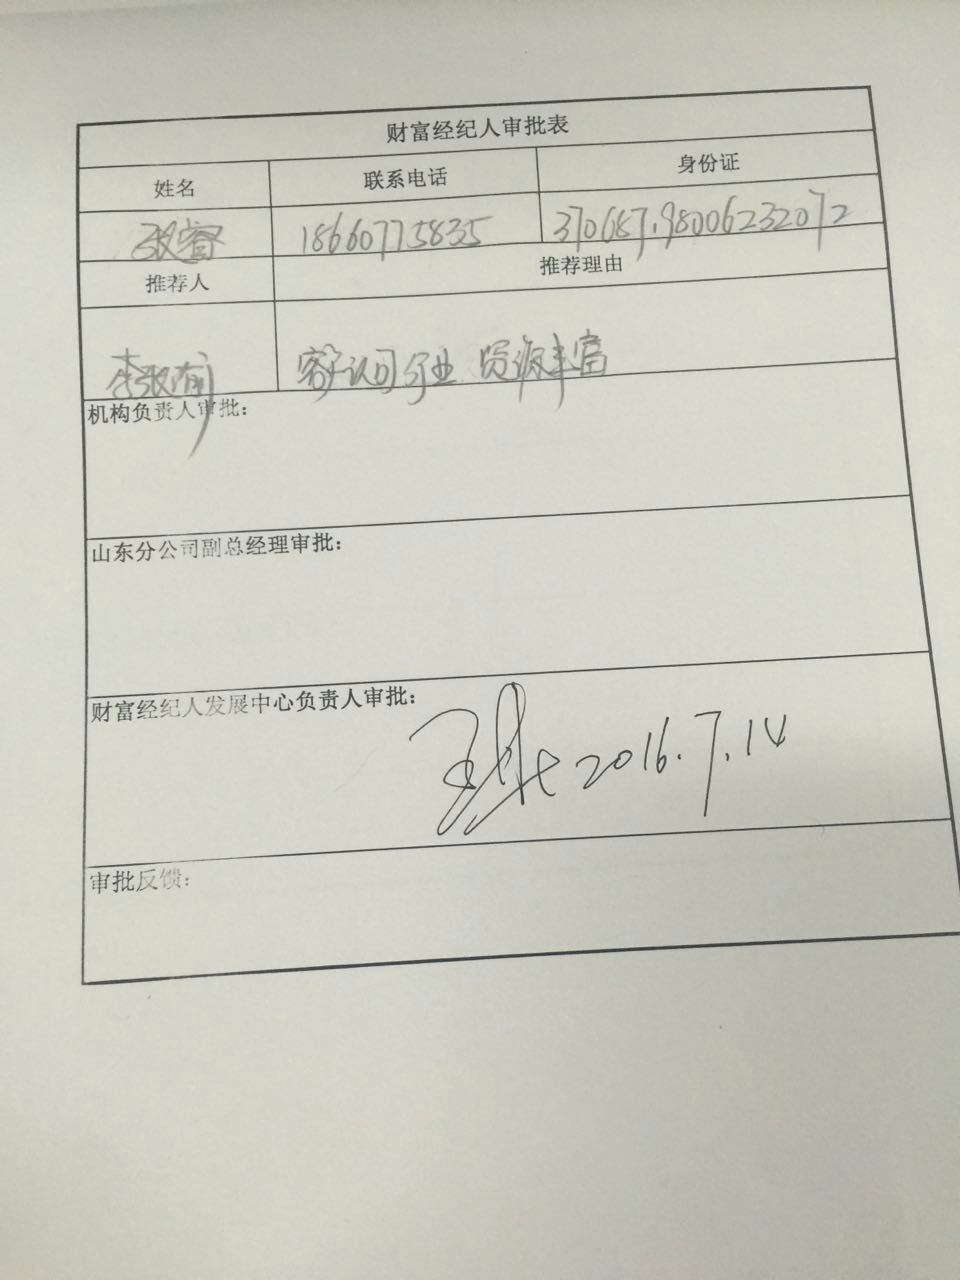 财富经纪人审批表
姓名 联系电话 身份证
张睿 18660775835 370687198006232072
推荐人 推荐理由
客户认可行业 资源丰富
机构负责人审批：
山东分公司副总经理审批：
财富经纪人发展中心负责人审批：
2016.7.14
审批反馈：